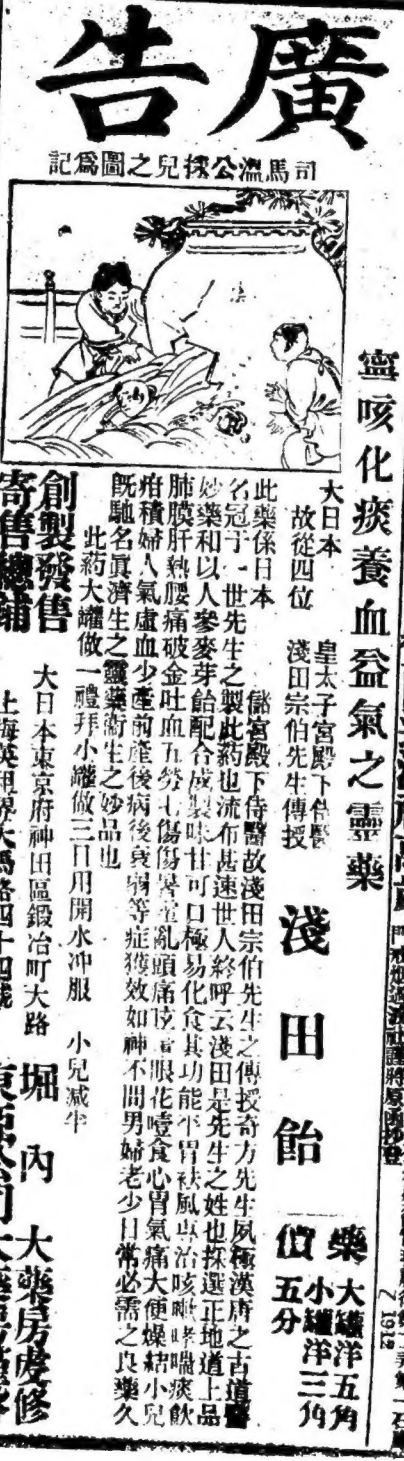 廣告
司馬溫公救兒之圖爲記
寧咳化痰養血益氣之靈藥
大日本
故從四位
皇太子宮殿下侍醫
淺田宗伯先生傳授
淺田飴
藥價
大罐洋五角
小罐洋三角
五分
此藥係日本
儲宮殿下侍醫故淺田宗伯先生之傳授奇方先生夙極漢唐之古道醫
名冠于一世先生之製此葯也流布甚速世人終呼云淺田是先生之姓也採選正地道上品
妙藥和以人參麥芽飴配合成製味甘可口極易化食其功能平胃袪風專治咳嗽哮喘痰飲
肺膜肝熱腰痛破金吐血五勞七傷傷暑霍亂頭痛 眼花噎食心胃氣痛大便燥結小兒
疳積婦人氣虛血少產前產後病後衰弱等症獲效如神不問男婦老少日常必需之良藥久
旣馳名眞濟生之靈藥衞生之妙品也
此葯大罐做一禮拜小罐做三日用開水冲服 小兒減半
創製發售
大日本東京府神田區鍛冶町大路
堀內
大藥房虔修
寄售總鋪
上海英租界大馬路四十四號
1912